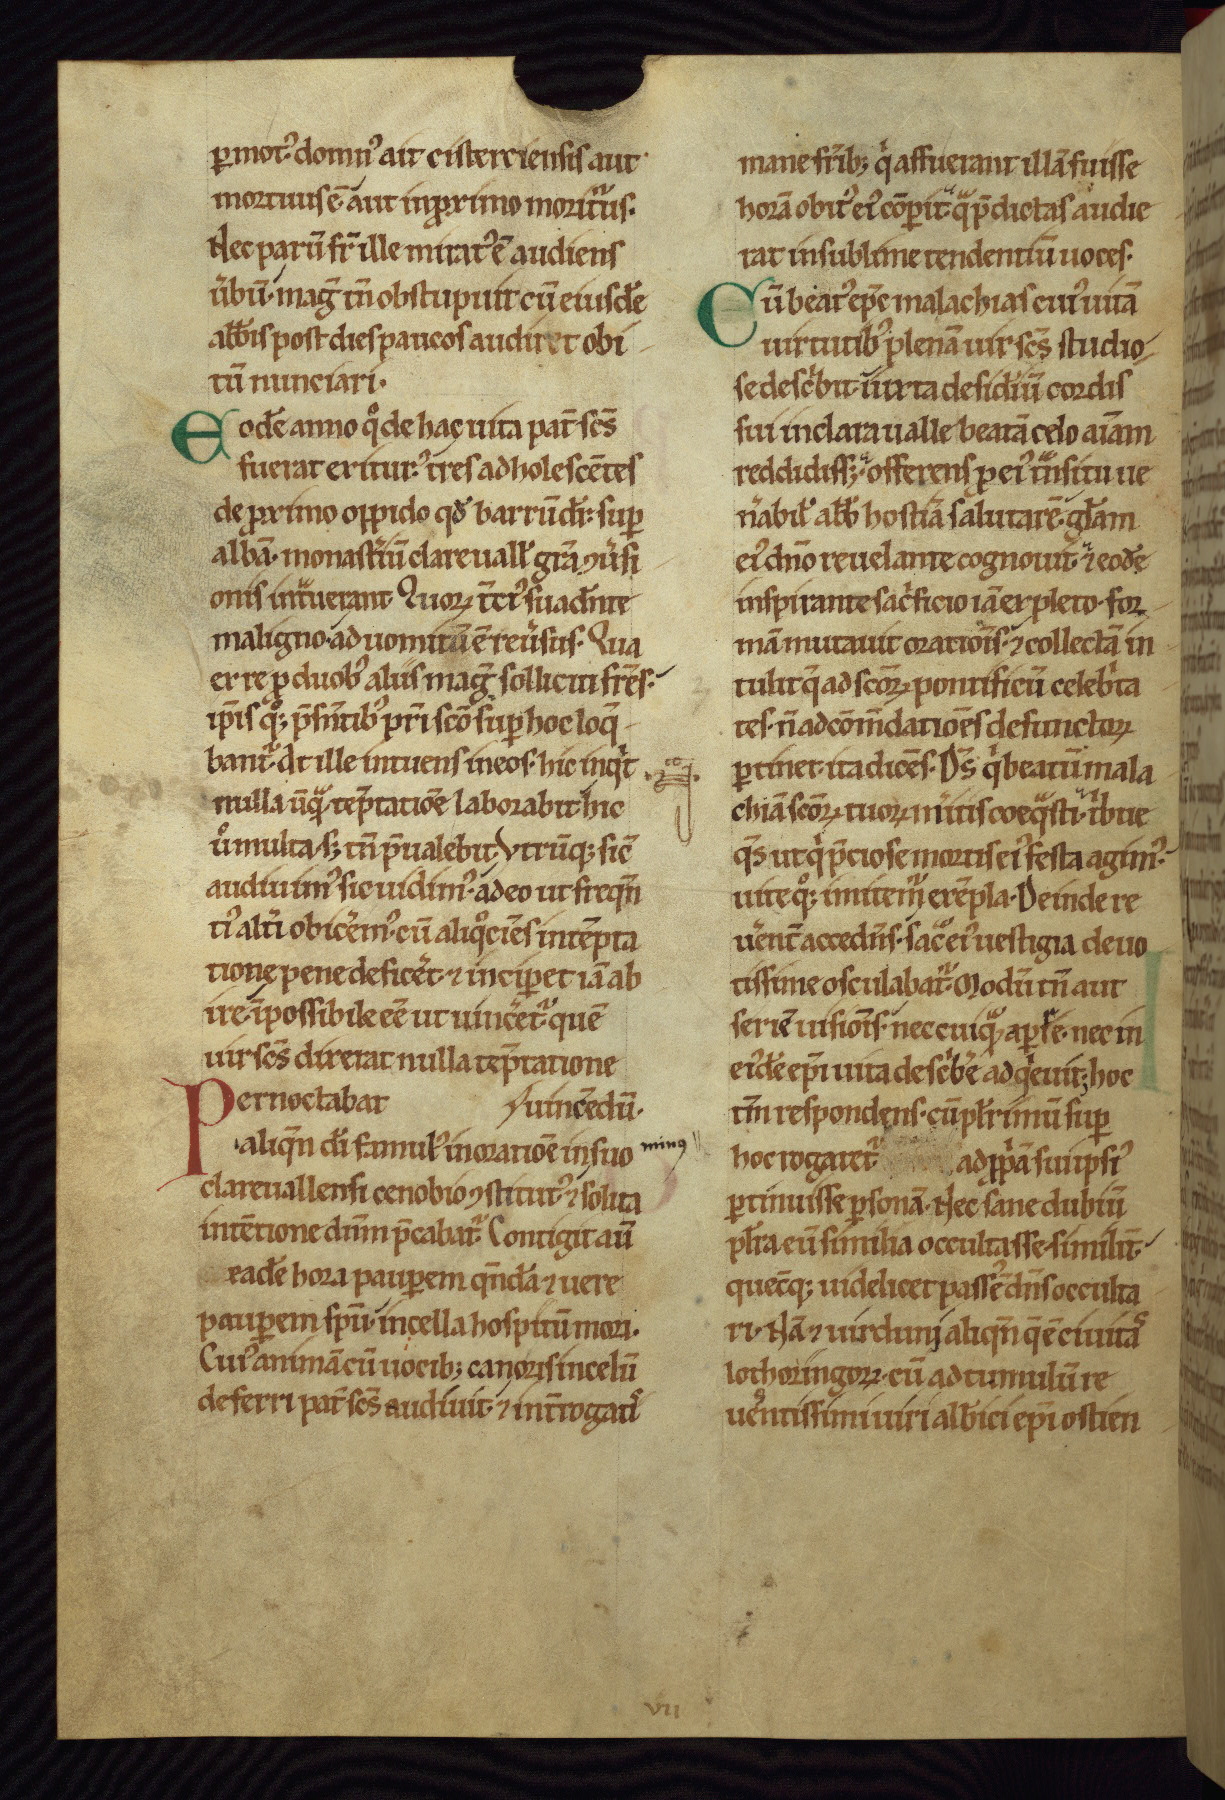 ꝑmot᷒ domn᷒ ait cisterciensis aut
mortuus ē aut in ꝓximo moritᷣus.
Nec parū fr̄ ille mirat᷒ ē audiens
ủbū. maḡ tn̄ obstupuit cū eiusdē
abb̄is post dies paucos audiret obi
tū nunciari.
Eodē anno q̊ de hac uita pat̄ sc̄s
fuerat exitur᷒ tres adholescētes
de ꝓximo oppido qđ barrū dr̄: suꝑ
albā. monastiū clareuall̄ gr̄a ꝯủsi
onis int̾uerant. Quoꝝ t̄ci᷒ suadēnte
maligno. ad uomitū ē reủsus. Qua
ex re ꝓ duob᷒ aliis maḡ solliciti fr̄es.
ip̄is q̊ꝫ p̄sn̄tib᷒ pr̄i sc̄o suꝑ hoc loq̄
bant᷑. At ille intuens in eos. hic inqͥt
nulla ūqᷓ tēptatiōe laborabit hic
ů multa. sꝫ tn̄ p̄ualebit. Vtrūqꝫ sic̄
audiuim᷒ sic uidim᷒. adeo ut freqn̄
ti᷒ alt̄i obicēm᷒. cū aliq̊ciēs in tēpta
tione pene deficēt. ⁊ inciꝑet iā ab
ire. īpossibile eē ut uincēt᷑ quē
uir sc̄s dixerat nulla tēptatione
Pernoctabat uincēdū.
aliqn̄ dī famul᷒ in oratiōe in suo
min᷒
clareuallensi cenobio ꝯstitut᷒ ⁊ solita
intētione dn̄m p̄cabat᷑. Contigit aū
eadē hora pauperem qn̄dā ⁊ uere
pauꝑem spū. in cella hospitū mori.
Cui᷒ animā cū uocibꝫ canoris in celū
deferri pat̄ sc̄s audiuit. ⁊ int̄rogatͥ
mane fr̄ibꝫ qͥ affuerant illā fuisse
horā obit᷒ ei᷒ cōꝑit. qᷓ p̄dictas audie
rat in sublime tendentiū uoces.
Cū beat᷒ ep̄c malachias cui᷒ uitā
uirtutib᷒ plenā uir sc̄s studio
se desc̾bit. iuxta desidiū cordis
sui in clara ualle beatā celo aīam
reddidissꝫ. offerens ꝓ ei᷒ tᷓnsitu ue
ňabil᷒ abb̄ hostiā salutarē. gl̄am
ei᷒ dn̄o reuelante cognouit. ⁊ eodē
inspirante sacͥficio iā expleto. for
mā mutauit oratiōis. ⁊ collectā in
tulit q̄ ad sc̄oꝝ pontificū celebͥta
tes. n̄ ad cōmdatiōes defunctoꝝ
ꝑtinet. ita dicēs. Ds̄ qͥ beatū mala
chiā sc̄oꝝ tuoꝝ mͥitis coeqᷓsti. tͥbue
qs̄ ut qͥ p̄ciose mortis ei᷒ festa agim᷒.
uite q̊ꝫ imitem᷑ exēpla. Deinde re
ủent̄ accedn̄s. sac̄ ei᷒ uestigia deuo
tissime osculabat᷑. Modū tn̄ aut
seriē uisiōis. nec cuiqᷓ aꝑire. nec in
ei᷒dē ep̄i uita desc̾bē adqͥeuit. hoc
tm̄ respondens. cū plͥrimū suꝑ
hoc rogaret᷑ ad ꝓpͥā sui ipsi᷒
ꝑtinuisse ꝑsonā. Nec sane dubiū
plr̄a eū similia occultasse. similit᷑
quecūqꝫ uidelicet passē dn̄s occulta
ri. Nā ⁊ uirduni aliqn̄ q̄ ē ciuitᷓ
lothoringoꝝ. cū ad tumulū re
ủentissimi uiri albͥici ep̄i ostien
vii